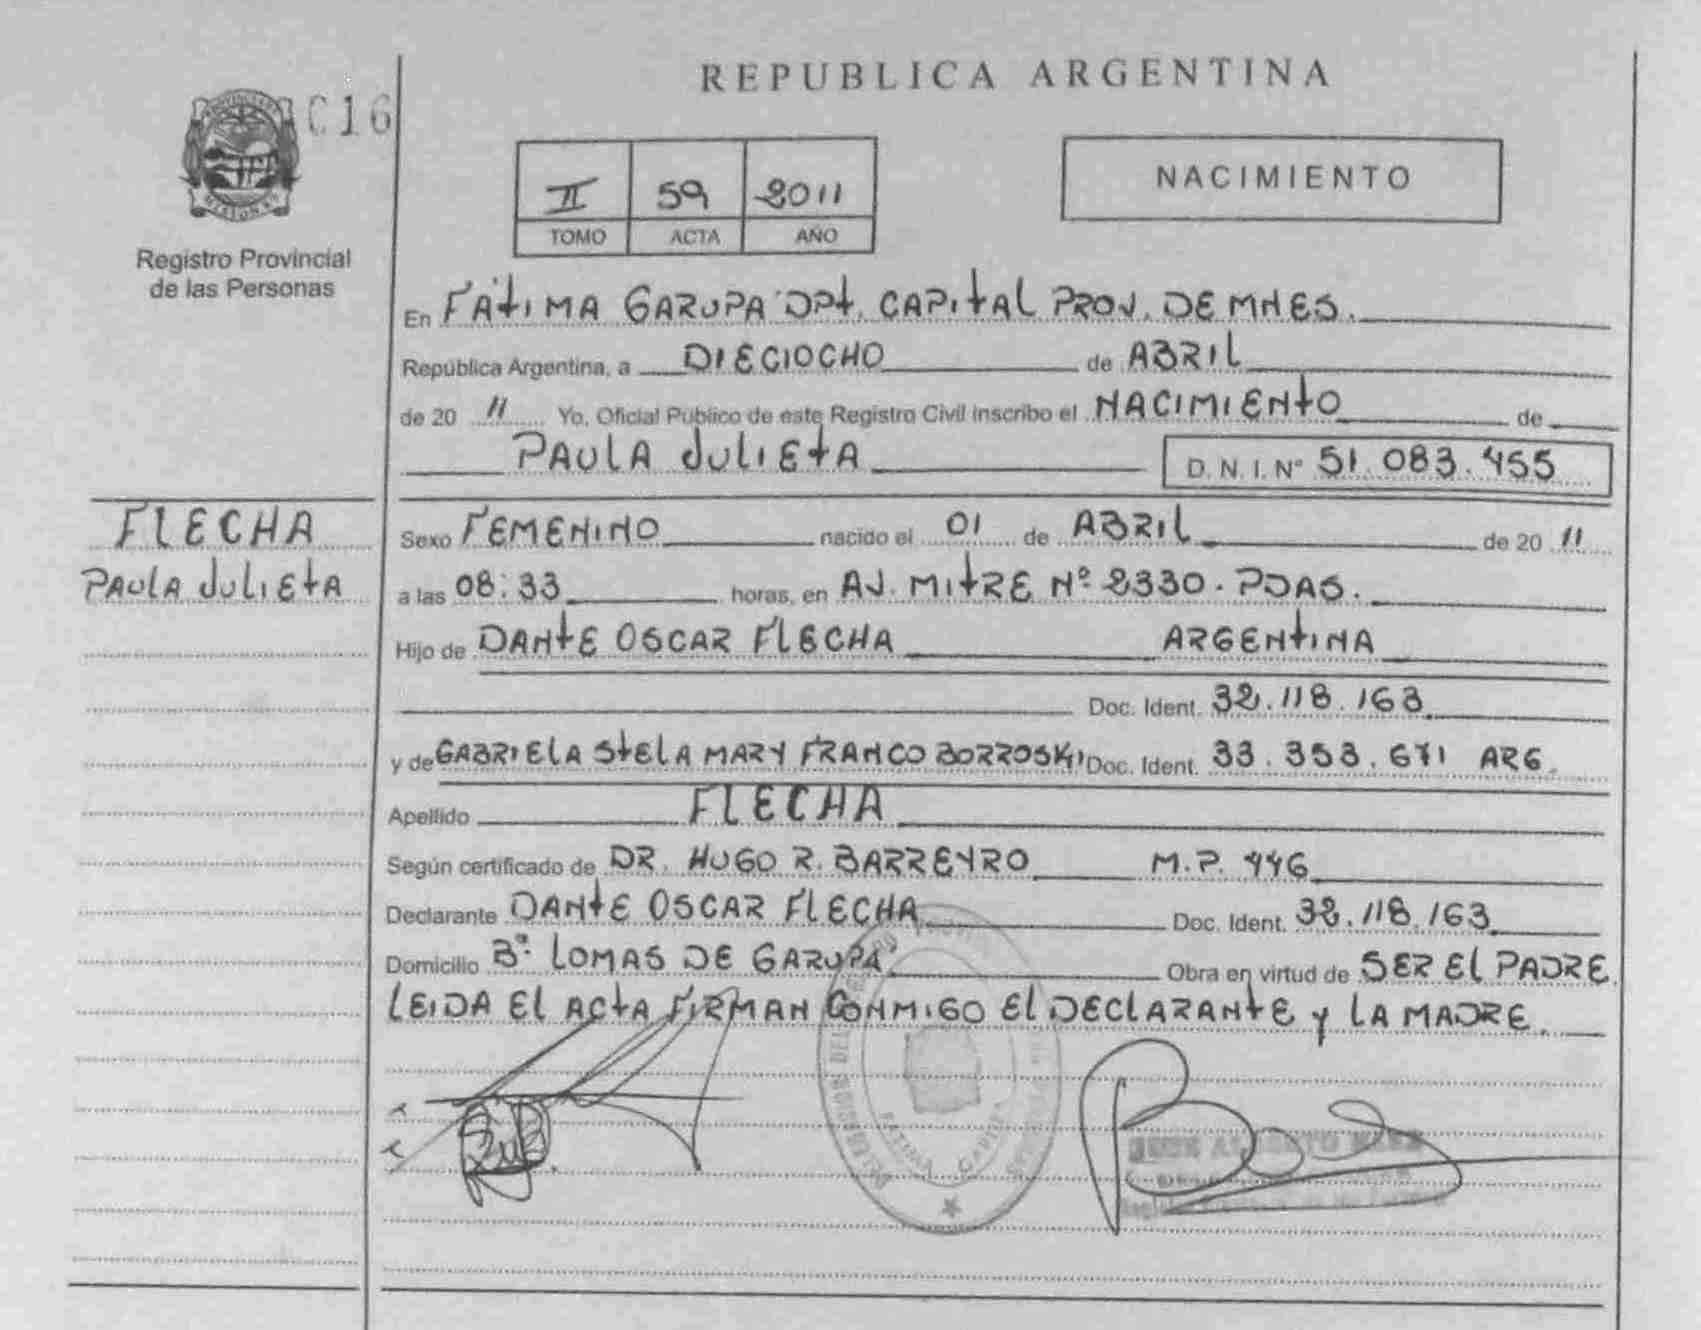 REPUBLICA ARGENTINA
C16
PROVINCIA
MISIONES
Registro Provincial
de las Personas
II 59 2011
TOMO ACTA AÑO
NACIMIENTO
En FÁTIMA GARUPA DPT. CAPITAL PROV. DE MNES.
República Argentina, a DIECIOCHO de ABRIL
de 20 11 Yo, Oficial Público de este Registro Civil inscribo el NACIMIENTO de
PAULA JULIETA D. N. I. N° 51.083.455
FLECHA
PAULA JULIETA
Sexo FEMENINO nacido el 01 de ABRIL de 20 11
a las 08:33 horas, en AV. MITRE Nº 2330. PDAS.
Hijo de DANTE OSCAR FLECHA ARGENTINA
Doc. Ident. 32.118.163
y de GABRIELA STELA MARY FRANCO BORROSKI Doc. Ident. 33.353.671 ARG.
Apellido FLECHA
Según certificado de DR. HUGO R. BARREYRO M.P. 446
Declarante DANTE OSCAR FLECHA Doc. Ident. 32.118.163
Domicilio Bº LOMAS DE GARUPA Obra en virtud de SER El PADRE
LEIDA El ACTA FIRMAN CONMIGO El DECLARANTE y LA MADRE.
FATIMA GARUPA